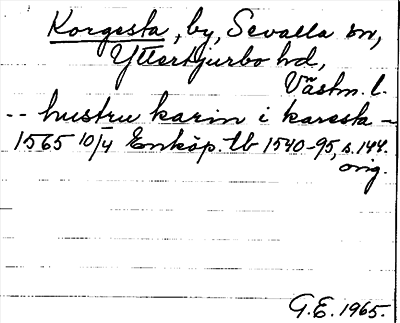 Korgesta, by, Sevalla sn,
Ytterkjurbo hd,
Västm. l.
-- hustru karin i karesta -
1565 10/4 Enköp. tb 1540-95, s. 144.
orig.
G.E. 1965.